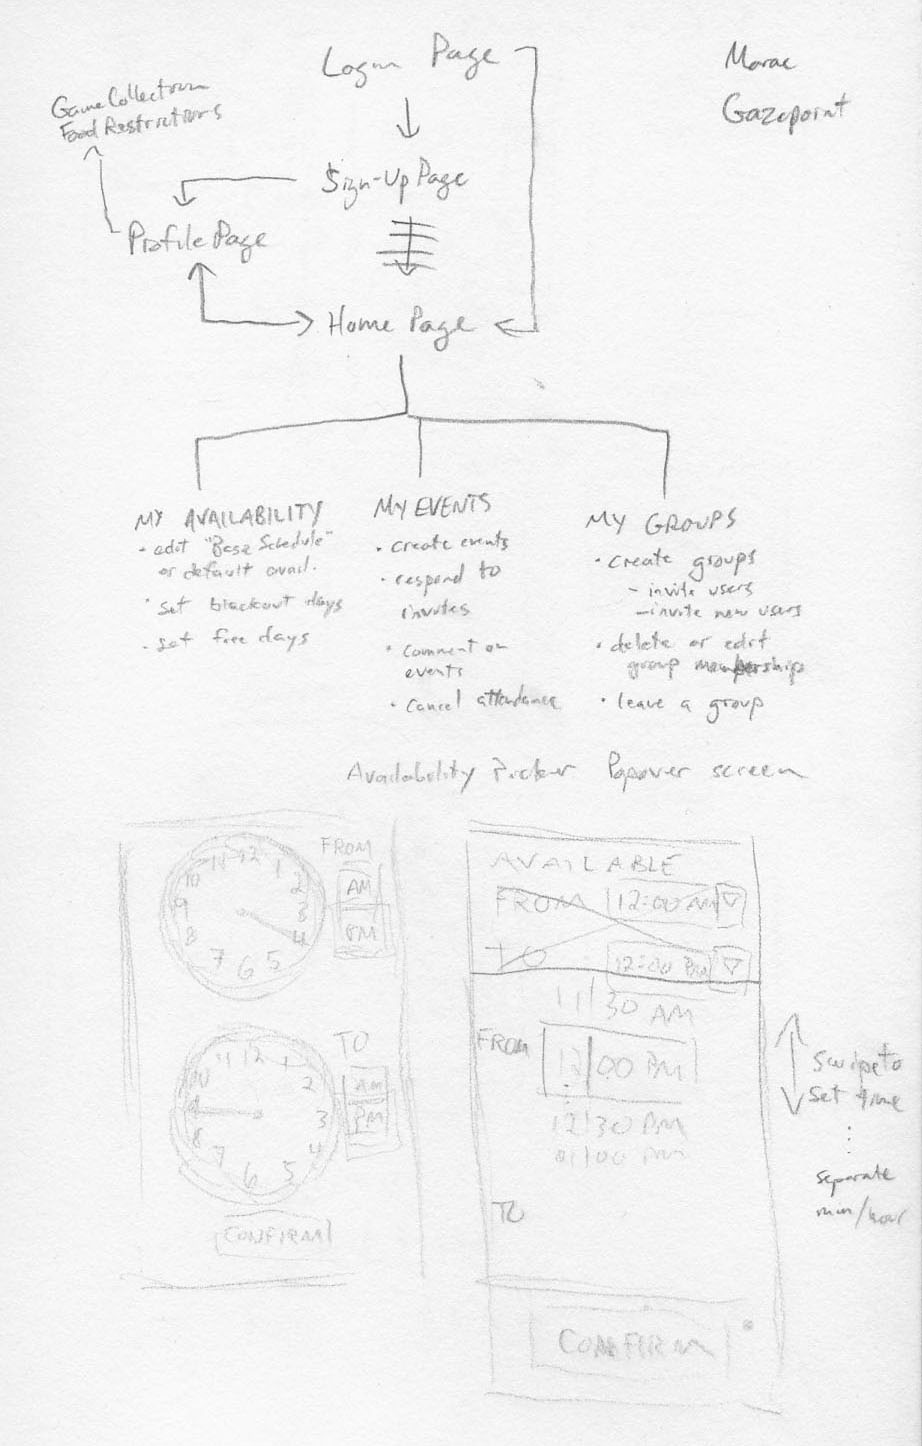 Login Page
Morae
Gazepoint
Game Collection
Food Restrictions
Sign-Up Page
Profile Page
Home Page
MY AVAILABILITY
• edit "Base Schedule"
or default avail.
• set blackout days
• set free days
MY EVENTS
• create events
• respond to
invites
• comment on
events
• cancel attendance
MY GROUPS
• create groups
- invite users
- invite new users
• delete or edit
group memberships
• leave a group
Availability Picker Popover screen
FROM
12 1 2 3 4 5 6 7 8 9 10 11
AM
PM
TO
12 1 2 3 4 5 6 7 8 9 10 11
AM
PM
CONFIRM
AVAILABLE
FROM 12:00 AM
TO 12:00 PM
11 30 AM
FROM 12 00 PM
12 30 PM
01 00 PM
TO
CONFIRM
swipe to
set time
separate
min/hour